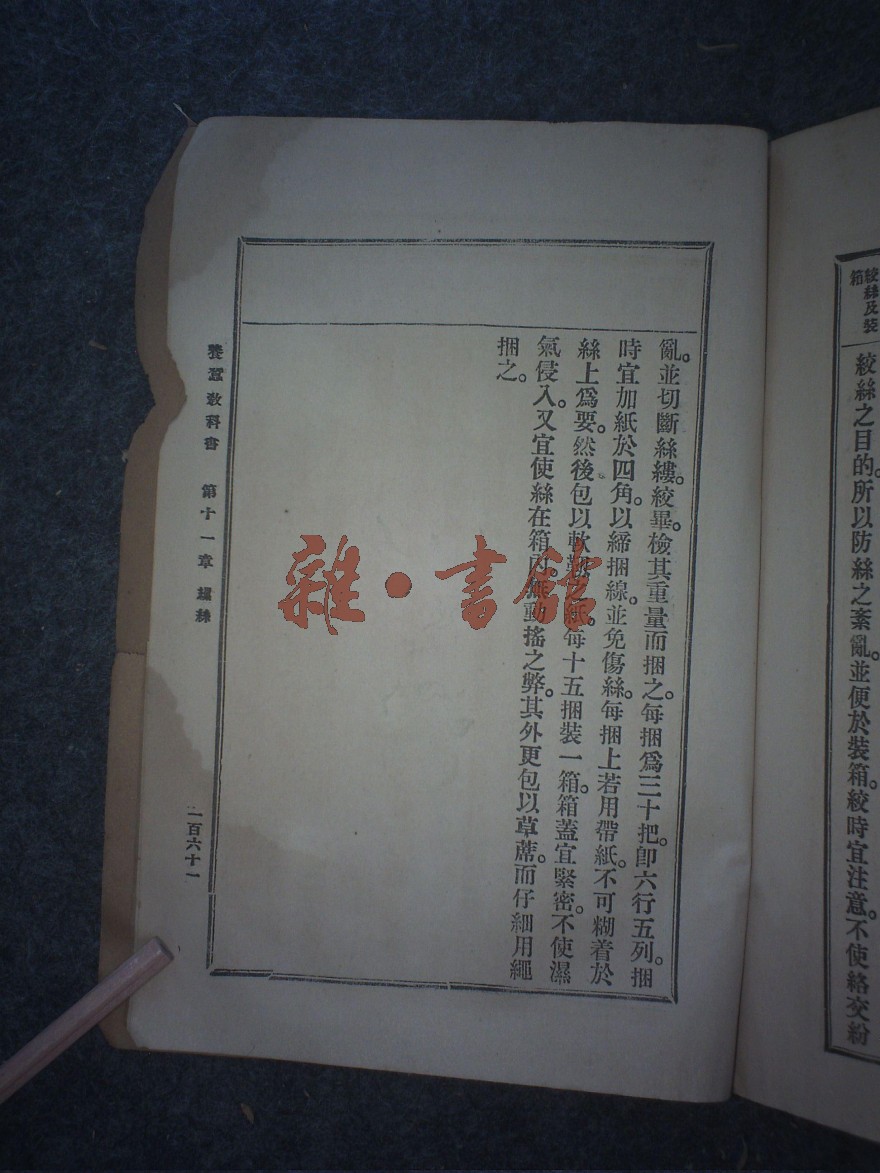 絞絲及裝
箱
絞絲之目的。所以防絲之紊亂。並便於裝箱。絞時宜注意。不使絡交紛
亂。並切斷絲縷。絞畢。檢其重量而捆之。每捆爲三十把。卽六行五列。捆
時宜加紙於四角。以締捆線。並免傷絲。每捆上若用帶紙。不可糊着於
絲上爲要。然後包以軟 之紙。每十五捆裝一箱。箱蓋宜緊密。不使濕
氣侵入。又宜使絲在箱內。無動搖之弊。其外更包以草蓆。而仔細用繩
捆之。
養蠶教科書 第十一章 繅絲
二百六十一
雜·書館